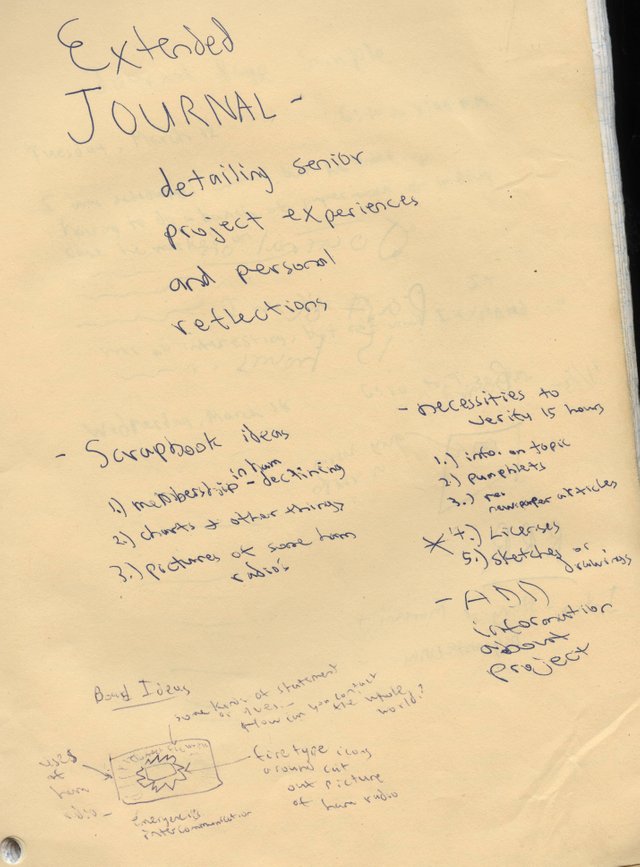 Extended
JOURNAL -
detailing senior
project experiences
and personal
reflections
- Scrapbook ideas
1.) membership in ham - declining
2.) charts & other things
3.) pictures of some ham
radio's
- necessities to
verify 15 hours
1.) info. on topic
2.) pamphlets
3.) newspaper articles
* 4.) Licenses
5.) sketches or
drawings
- ADD
information
about
project
Board Ideas
some kind of statement
How can you contact
the whole
world?
uses
of
ham
radio -
fire type icons
around cut
out picture
of ham radio
Emergencies
intercommunication